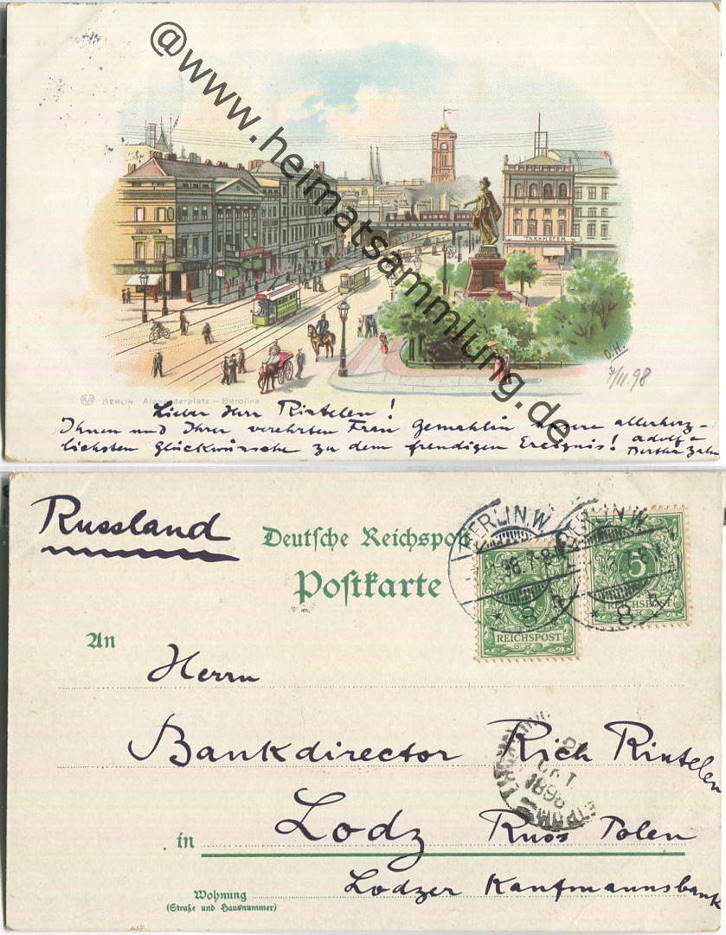 @www.heimatsammlung.de
O.H.
7/11.98
BERLIN. Alexanderplatz - Berolina
Lieber Herr Rintelen!
Ihnen und Ihrer verehrten Frau Gemahlin unsere allerherz-
lichsten Glückwünsche zu dem freudigen Ereigniss! Adolf u
Bertha Zahn
Russland
Deutsche Reichspost
Postkarte
BERLIN.W.
BERLIN.W.
8
8
5
REICHSPOST
REICHSPOST
An
Herrn
Bankdirector Rich Rintelen
1898
in Lodz Russ Polen
Wohnung
(Straße und Hausnummer)
Lodzer Kaufmannsbank